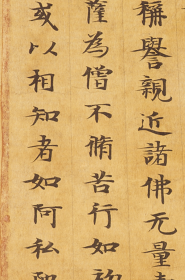 稱譽親近諸佛无量
薩為僧不脩苦行如
或以相知者如阿私